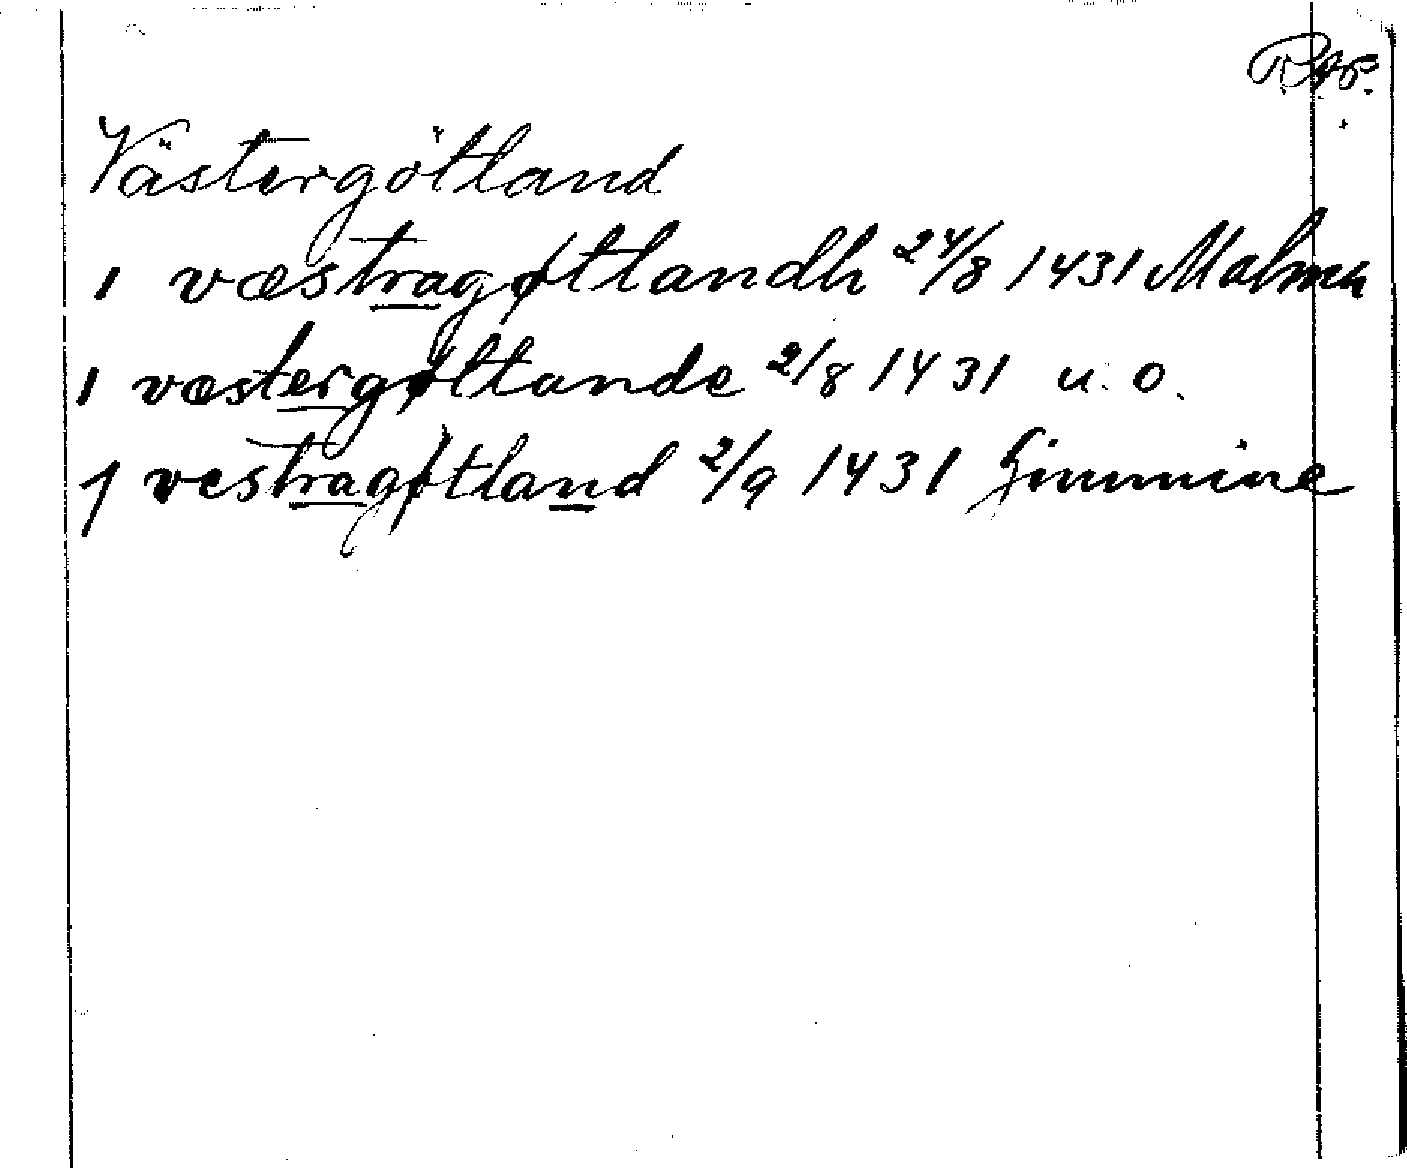 Västergötland
1 væstragøtlandh 24/8 1431 Malmø
1 væstergøttlande 2/8 1431 u. o.
1 vestragøtland 2/9 1431